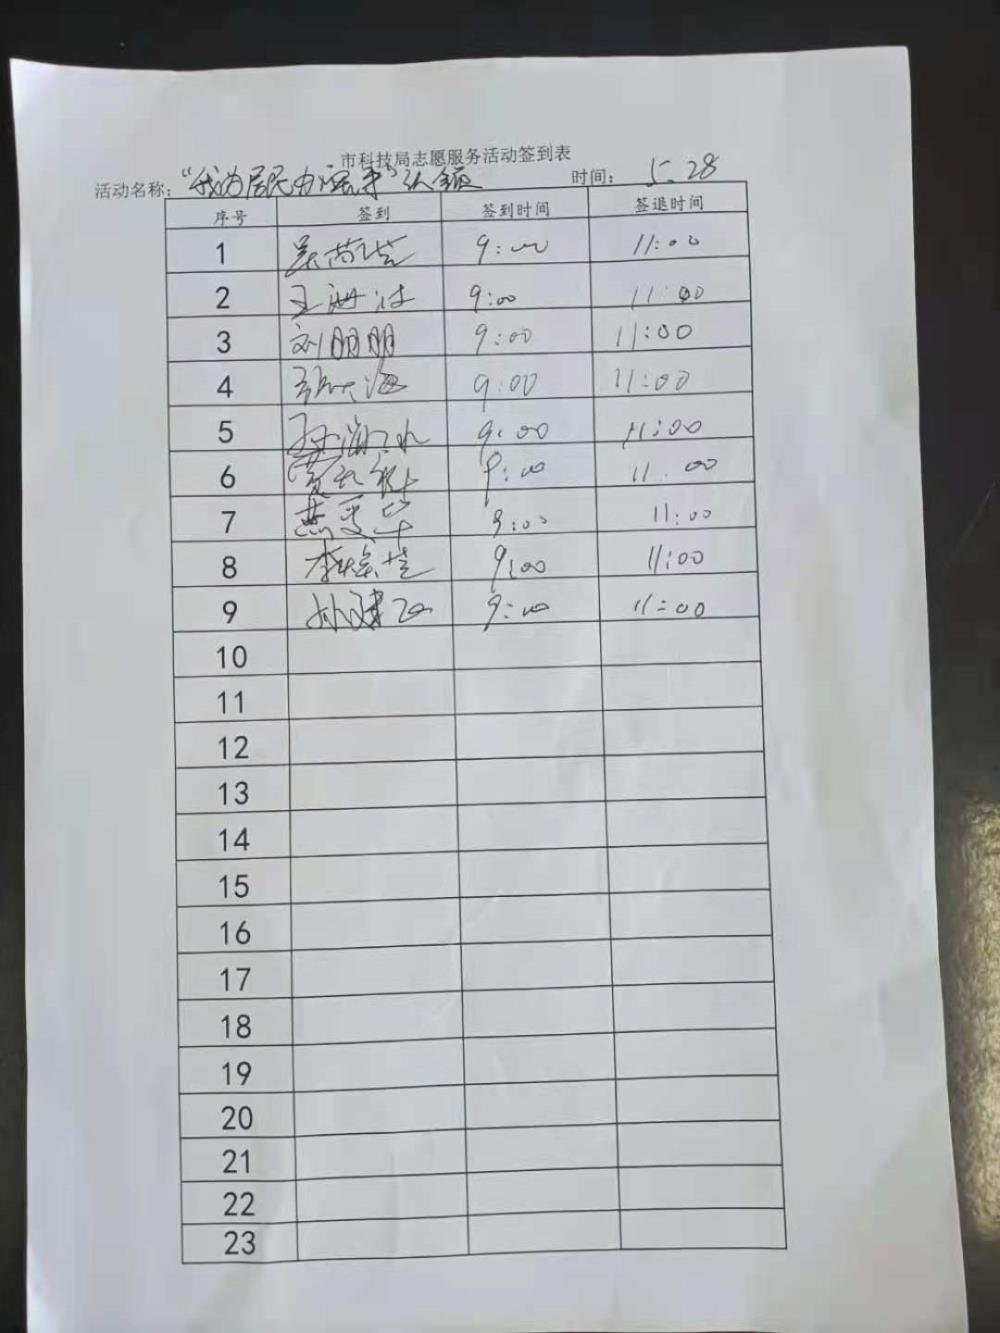 市科技局志愿服务活动签到表
活动名称：“我为居民办实事”认领 时间： 5.28
序号 签到 签到时间 签退时间
1 9:00 11:00
2 王 9:00 11:00
3 刘朋朋 9:00 11:00
4 张大海 9:00 11:00
5 9:00 11:00
6 9:00 11:00
7 燕 9:00 11:00
8 李 9:00 11:00
9 孙建 9:00 11:00
10
11
12
13
14
15
16
17
18
19
20
21
22
23